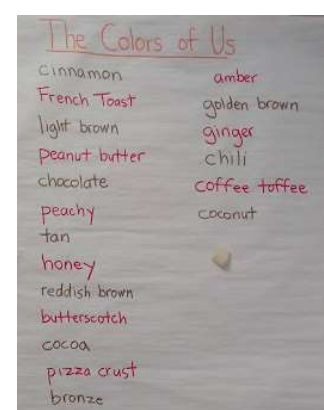 The Colors of Us
cinnamon
French Toast
light brown
peanut butter
chocolate
peachy
tan
honey
reddish brown
butterscotch
cocoa
pizza crust
bronze
amber
golden brown
ginger
chili
coffee toffee
coconut